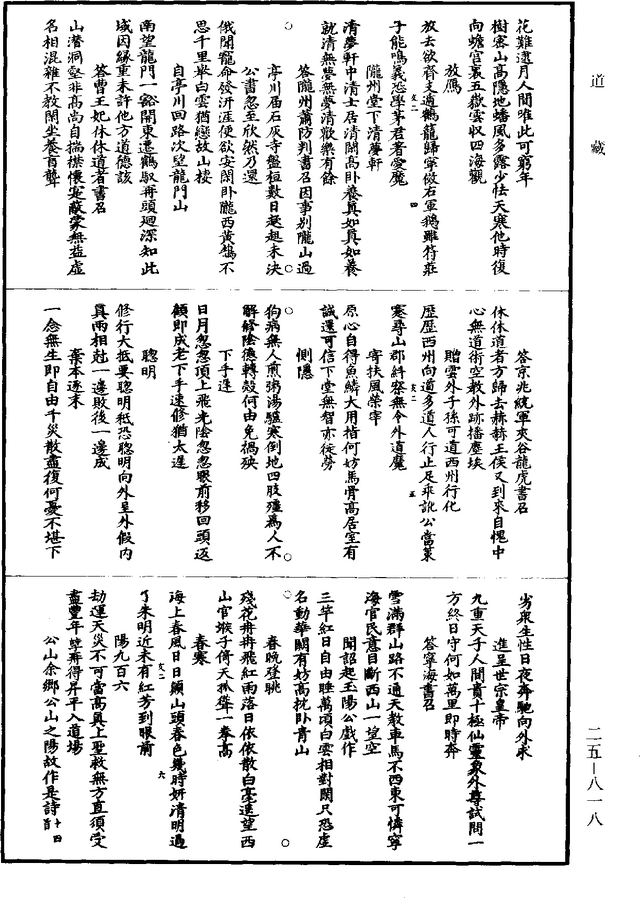 道藏
花難遇月人間唯此可窮年
樹密山高隱地蟠風多露少怯天寒他時復
向蟾宮裏五嶽雲收四海觀
放鴈
放去欲齊支遁鶴籠歸寧倣右軍鵝雖符莊
子能鳴義恐學茅君著愛魔
隴州堂下清夢軒
清夢軒中清士居清閑高卧養真如真如養
就清無夢無夢清歡樂有餘
答隴州蕭防判書召因事別隴山過
亭川届石灰寺盤桓數日趑趄未決
公書忽至欣然乃還
俄聞寵命發汧涯便欲安閑卧隴西黃鵠不
思千里舉白雲猶戀故山棲
自亭川回路次望龍門山
南望龍門一豁開東還鶴馭再頭廻深知此
域因緣重未許他方道德該
答曹王妃休休道者書召
山潛洞壑非高尚自揣襟懷寔蔽蒙無益虛
名相混雜不教閑坐養盲聾
答京兆統軍夾谷龍虎書召
休休道者方歸去赫赫王侯又到來自愧中
心無道術空教外跡播塵埃
贈雲外子孫可道西州行化
歷歷西州向道多道人行止足乖訛公當策
蹇尋山郡糾察無令外道魔
寄扶風榮宰
原心自得魚鱗大用楷何妨馬骨高居室有
誠還可信下堂無智亦徒勞
惻隱
狗病無人煎粥湯驢寒倒地四肢殭爲人不
解修陰德轉殼何由免禍殃
下手遲
日月忽忽頂上飛光陰忽忽眼前移回頭返
顧即成老下手速修猶太遲
聰明
修行大抵要聰明秪恐聰明向外呈外假內
真兩相尅一邊敗後一邊成
棄本逐末
一念無生即自由千災散盡復何憂不堪下
劣衆生性日夜奔馳向外求
進呈世宗皇帝
九重天子人間貴十極仙靈象外尊試問一
方終日守何如萬里即時奔
答寧海書召
雪滿群山路不通天教車馬不西東可憐寧
海官民意目斷西山一望空
聞詔起玉陽公戲作
三竿紅日自由睡萬頃白雲相對閑只恐虛
名動華闕有妨高枕卧青山
春晚登眺
殘花冉冉飛紅雨落日依依散白毫遥望西
山官堠子倚天孤聳一拳高
春寒
海上春風日日顛山頭春色幾時妍清明過
了朱明近未有紅芳到眼前
陽九百六
劫運天災不可當高真上聖救無方直須受
盡豐年𥮅得昇平入道場
公山余鄉公山之陽故作是詩十四首
二五—八一八